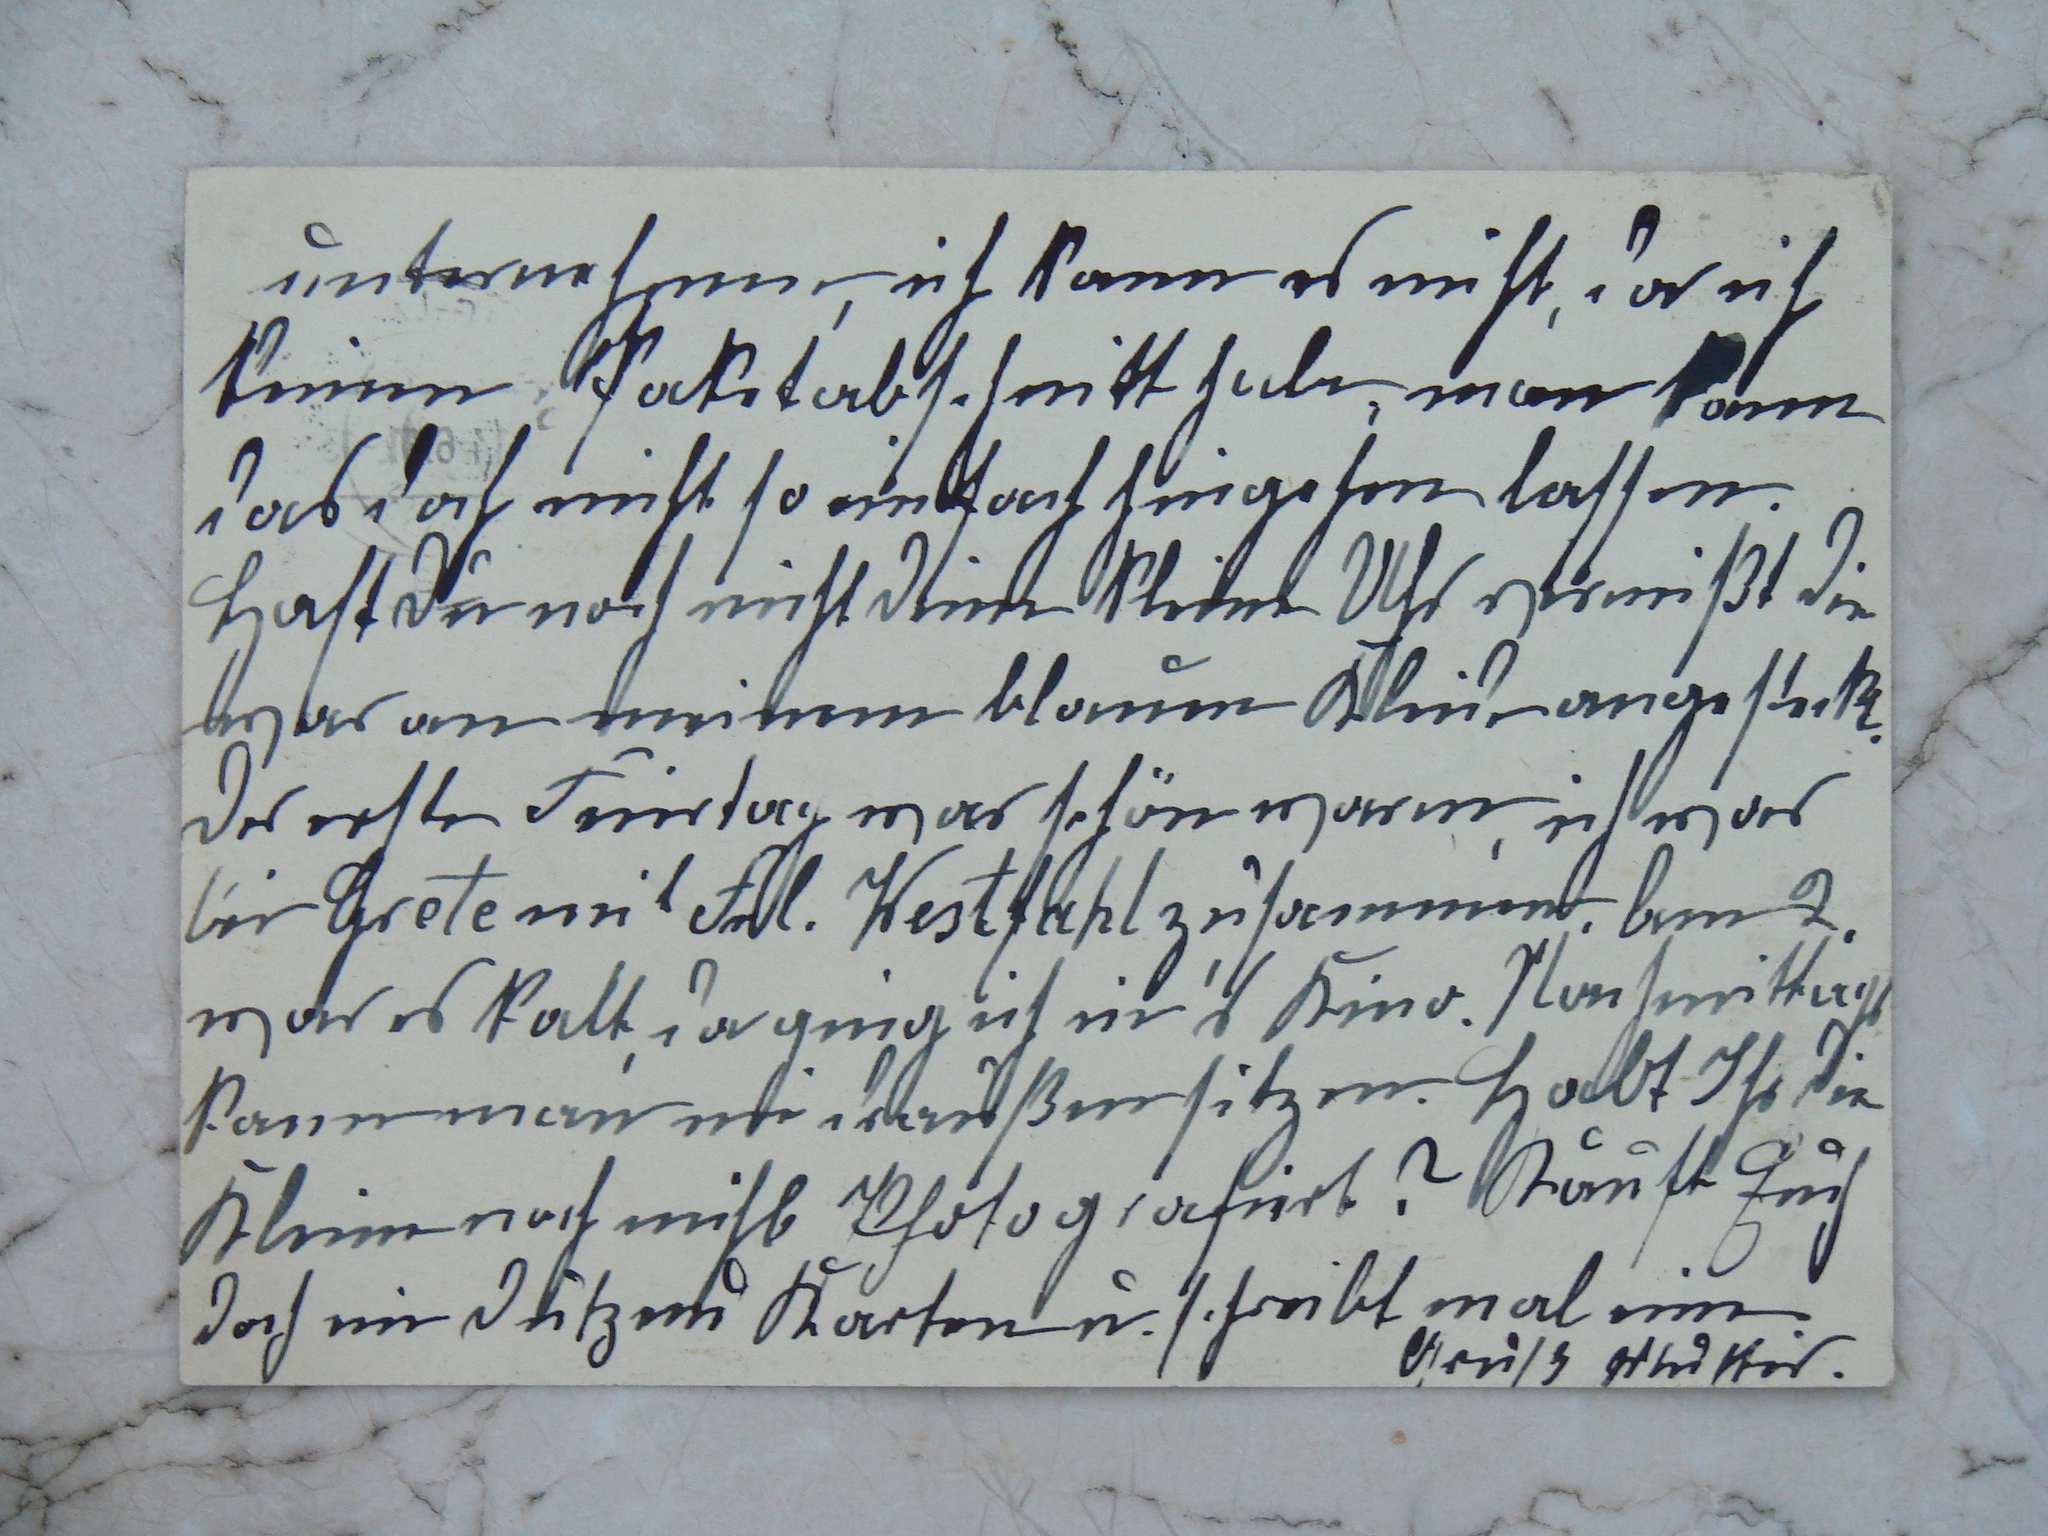 unternehmen, ich kann es nicht, da ich
keinen Paketabschnitt habe, man kann
das doch nicht so einfach hingehen lassen.
Hast Du noch nicht Deine kleine Uhr vermißt die
war an meinem blauen Kleide angesteckt.
Der erste Feiertag war schön warm, ich war
bei Grete mit Frl. Westfahl zusammen. Am 2.
war es kalt, da ging ich in's Kino. Nachmittags
kann man nie draußen sitzen. Habt Ihr die
Kleine noch nicht Photografiert? Kauft Euch
doch ein Dutzend Karten u. schreibt mal eine
Gruß Mutter.